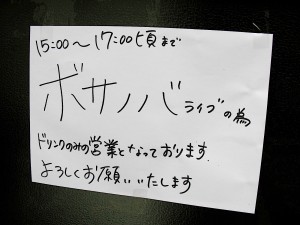 15:00〜17:00頃まで
ボサノバライブの為
ドリンクのみの営業となっております.
よろしくお願いいたします